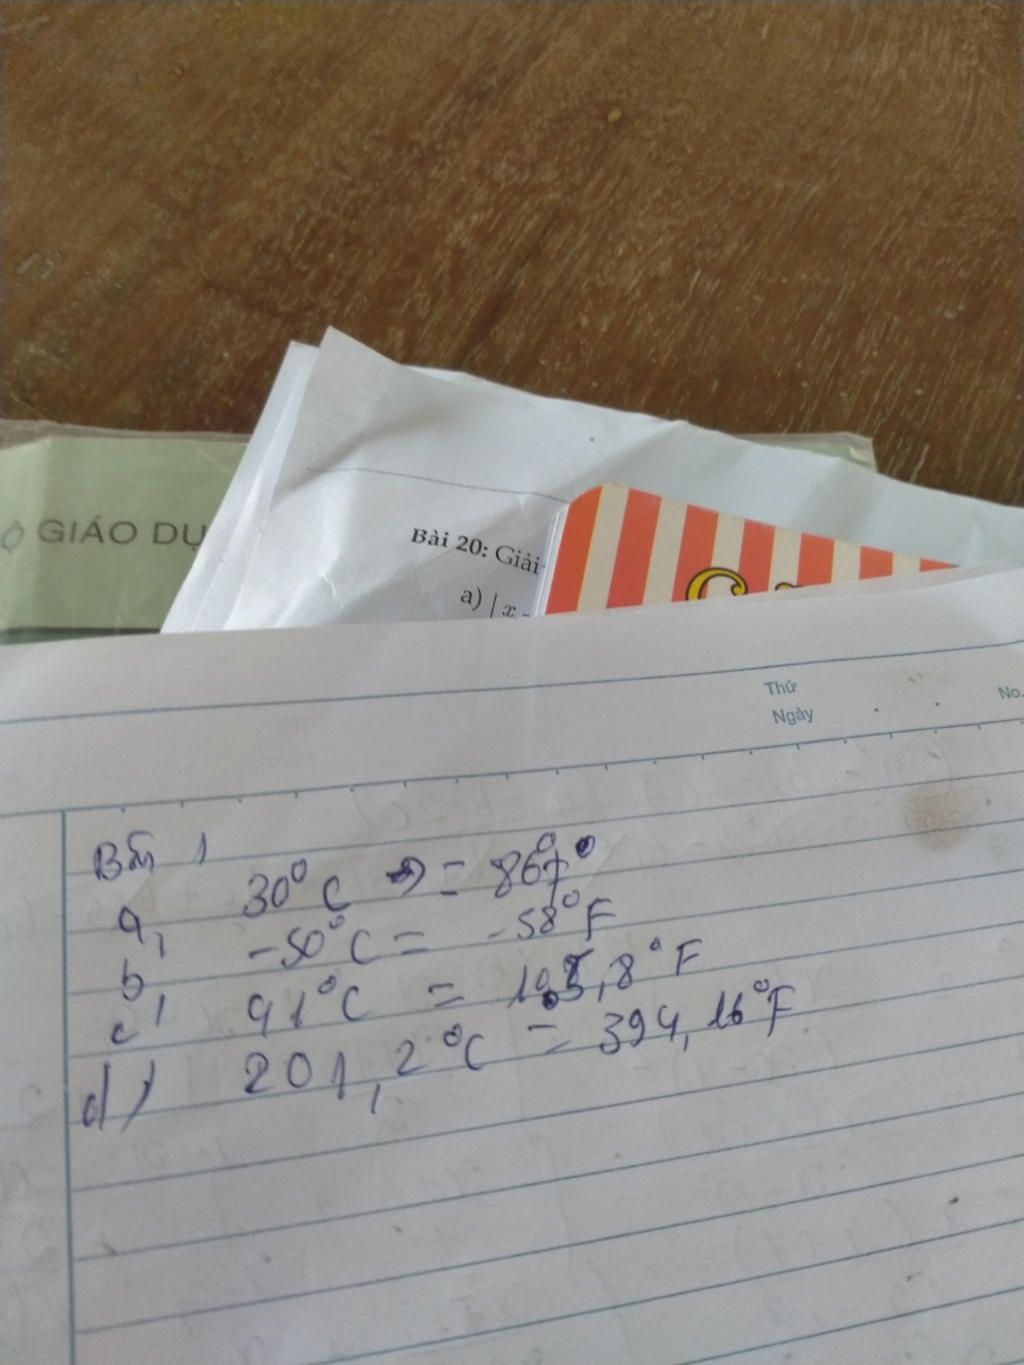 GIÁO DỤ
Bài 20: Giải
a) | x -
Thứ
Ngày
No.
Bài 1
a, 30°C = 86°F
b, -50°C = -58°F
c, 41°C = 105,8°F
d) 201,2°C = 394,16°F